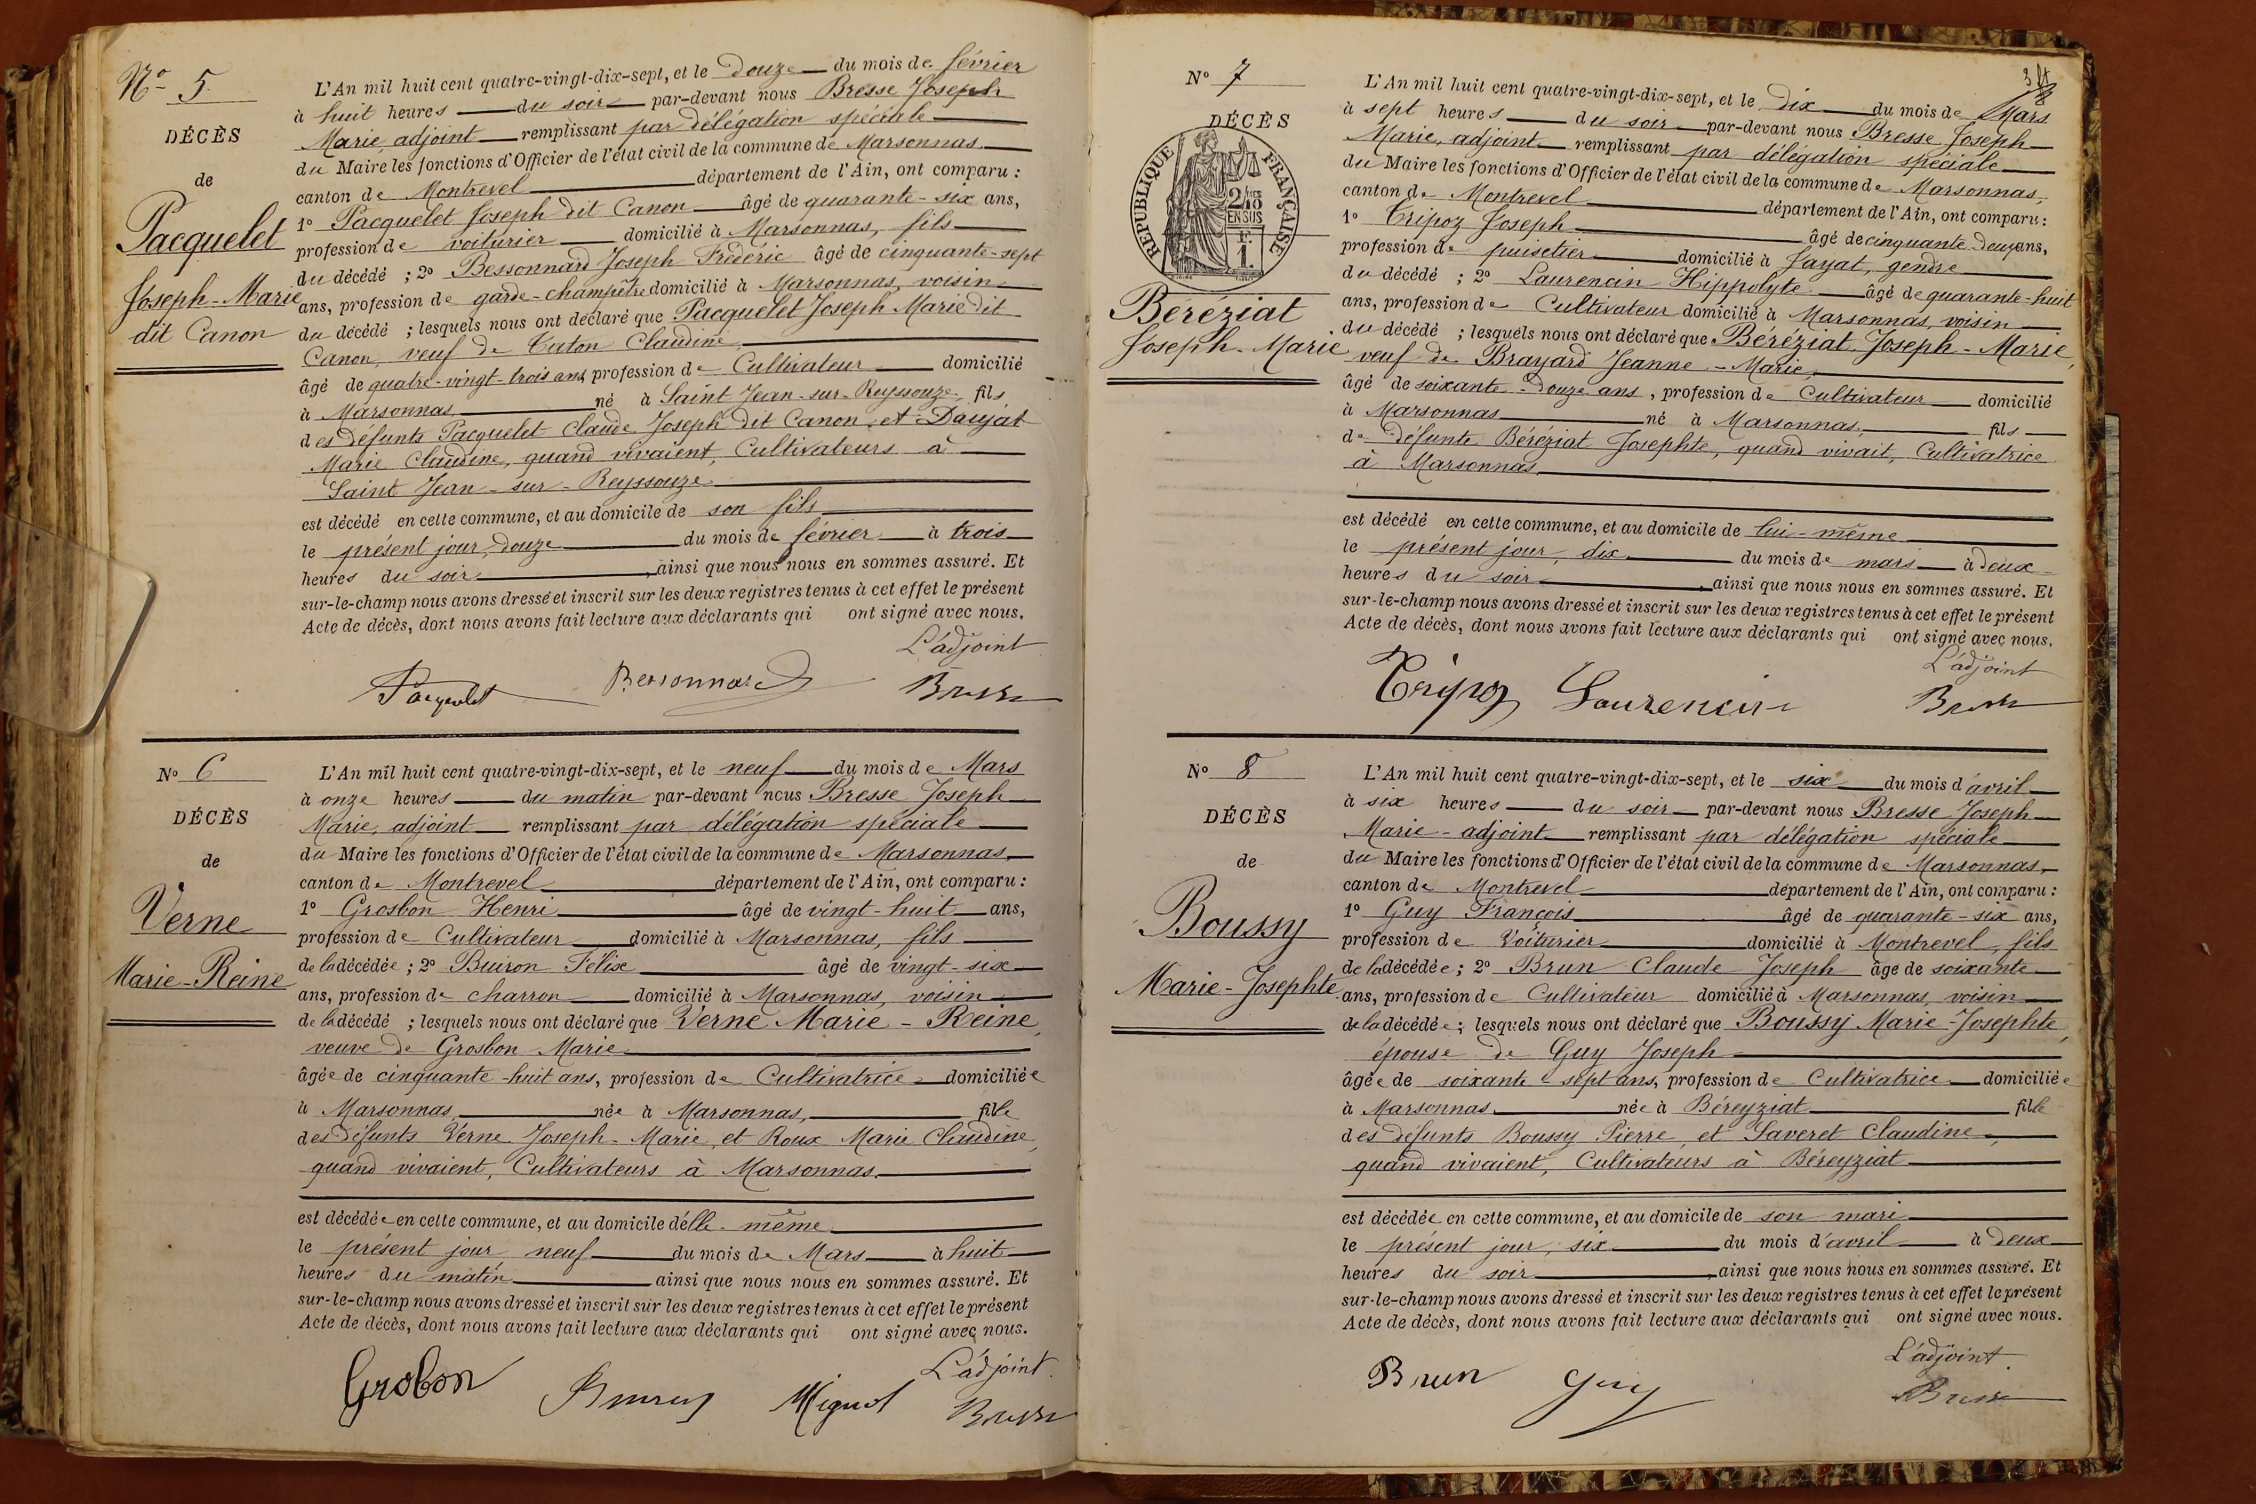 Nº 5
DÉCÈS
de
Pacquelet
Joseph-Marie
dit Canon
L'An mil huit cent quatre-vingt-dix-sept, et le douze du mois de février
à huit heures du soir par-devant nous Bresse Joseph
Marie, adjoint remplissant par délégation spéciale
du Maire les fonctions d'Officier de l'état civil de la commune de Marsonnas
canton de Montrevel département de l'Ain, ont comparu :
1º Pacquelet Joseph dit Canon âgé de quarante-six ans,
profession de voiturier domicilié à Marsonnas, fils
du décédé ; 2º Bessonnard Joseph Frédéric âgé de cinquante-sept
ans, profession de garde-champêtre domicilié à Marsonnas, voisin
du décédé ; lesquels nous ont déclaré que Pacquelet Joseph Marie dit
Canon, veuf de Caton Claudine
âgé de quatre-vingt-trois ans, profession de Cultivateur domicilié
à Marsonnas né à Saint Jean-sur-Reyssouze, fils
des défunts Pacquelet Claude Joseph dit Canon, et Daujat
Marie Claudine, quand vivaient, Cultivateurs à
Saint Jean-sur-Reyssouze
est décédé en cette commune, et au domicile de son fils
le présent jour, douze du mois de février à trois
heures du soir, ainsi que nous nous en sommes assuré. Et
sur-le-champ nous avons dressé et inscrit sur les deux registres tenus à cet effet le présent
Acte de décès, dont nous avons fait lecture aux déclarants qui ont signé avec nous.
L'adjoint
Pacquelet Bessonnard Bresse
Nº 6
DÉCÈS
de
Verne
Marie-Reine
L'An mil huit cent quatre-vingt-dix-sept, et le neuf du mois de Mars
à onze heures du matin par-devant nous Bresse Joseph
Marie, adjoint remplissant par délégation spéciale
du Maire les fonctions d'Officier de l'état civil de la commune de Marsonnas,
canton de Montrevel département de l'Ain, ont comparu :
1º Grosbon Henri âgé de vingt-huit ans,
profession de Cultivateur domicilié à Marsonnas, fils
de la décédée ; 2º Buiron Félix âgé de vingt-six
ans, profession de charron domicilié à Marsonnas, voisin
de la décédé ; lesquels nous ont déclaré que Verne Marie-Reine,
veuve de Grosbon Marie
âgée de cinquante-huit ans, profession de Cultivatrice domiciliée
à Marsonnas, née à Marsonnas, fille
des défunts Verne Joseph-Marie, et Roux Marie Claudine,
quand vivaient, Cultivateurs à Marsonnas.
est décédée en cette commune, et au domicile d'elle-même
le présent jour neuf du mois de Mars à huit
heures du matin ainsi que nous nous en sommes assuré. Et
sur-le-champ nous avons dressé et inscrit sur les deux registres tenus à cet effet le présent
Acte de décès, dont nous avons fait lecture aux déclarants qui ont signé avec nous.
L'adjoint
Grobon Mignot Bresse
Nº 7
DÉCÈS
RÉPUBLIQUE FRANÇAISE
2/10
EN SUS
F.
1.
Béréziat
Joseph-Marie
L'An mil huit cent quatre-vingt-dix-sept, et le dix du mois de Mars
à sept heures du soir par-devant nous Bresse Joseph
Marie, adjoint remplissant par délégation spéciale
du Maire les fonctions d'Officier de l'état civil de la commune de Marsonnas,
canton de Montrevel département de l'Ain, ont comparu :
1º Tripoz Joseph âgé de cinquante-deux ans,
profession de puisetier domicilié à Jayat, gendre
du décédé ; 2º Laurencin Hippolyte âgé de quarante-huit
ans, profession de Cultivateur domicilié à Marsonnas, voisin
du décédé ; lesquels nous ont déclaré que Béréziat Joseph-Marie,
veuf de Brayard Jeanne-Marie,
âgé de soixante-douze ans, profession de Cultivateur domicilié
à Marsonnas né à Marsonnas, fils
de défunte Béréziat Josephte, quand vivait, Cultivatrice
à Marsonnas
est décédé en cette commune, et au domicile de lui-même
le présent jour, dix du mois de mars à deux
heures du soir, ainsi que nous nous en sommes assuré. Et
sur-le-champ nous avons dressé et inscrit sur les deux registres tenus à cet effet le présent
Acte de décès, dont nous avons fait lecture aux déclarants qui ont signé avec nous.
L'adjoint
Tripoz Laurencin Bresse
Nº 8
DÉCÈS
de
Boussy
Marie-Josephte
L'An mil huit cent quatre-vingt-dix-sept, et le six du mois d'avril
à six heures du soir par-devant nous Bresse Joseph
Marie-adjoint remplissant par délégation spéciale
du Maire les fonctions d'Officier de l'état civil de la commune de Marsonnas,
canton de Montrevel département de l'Ain, ont comparu :
1º Guy François âgé de quarante-six ans,
profession de Voiturier domicilié à Montrevel, fils
de la décédée ; 2º Brun Claude Joseph âgé de soixante
ans, profession de Cultivateur domicilié à Marsonnas, voisin
de la décédée ; lesquels nous ont déclaré que Boussy Marie-Josephte,
épouse de Guy Joseph
âgée de soixante-sept ans, profession de Cultivatrice domiciliée
à Marsonnas née à Béreyziat fille
des défunts Boussy Pierre, et Saveret Claudine,
quand vivaient, Cultivateurs à Béreyziat
est décédée en cette commune, et au domicile de son mari
le présent jour, six du mois d'avril à deux
heures du soir, ainsi que nous nous en sommes assuré. Et
sur-le-champ nous avons dressé et inscrit sur les deux registres tenus à cet effet le présent
Acte de décès, dont nous avons fait lecture aux déclarants qui ont signé avec nous.
L'adjoint.
Brun Guy Bresse